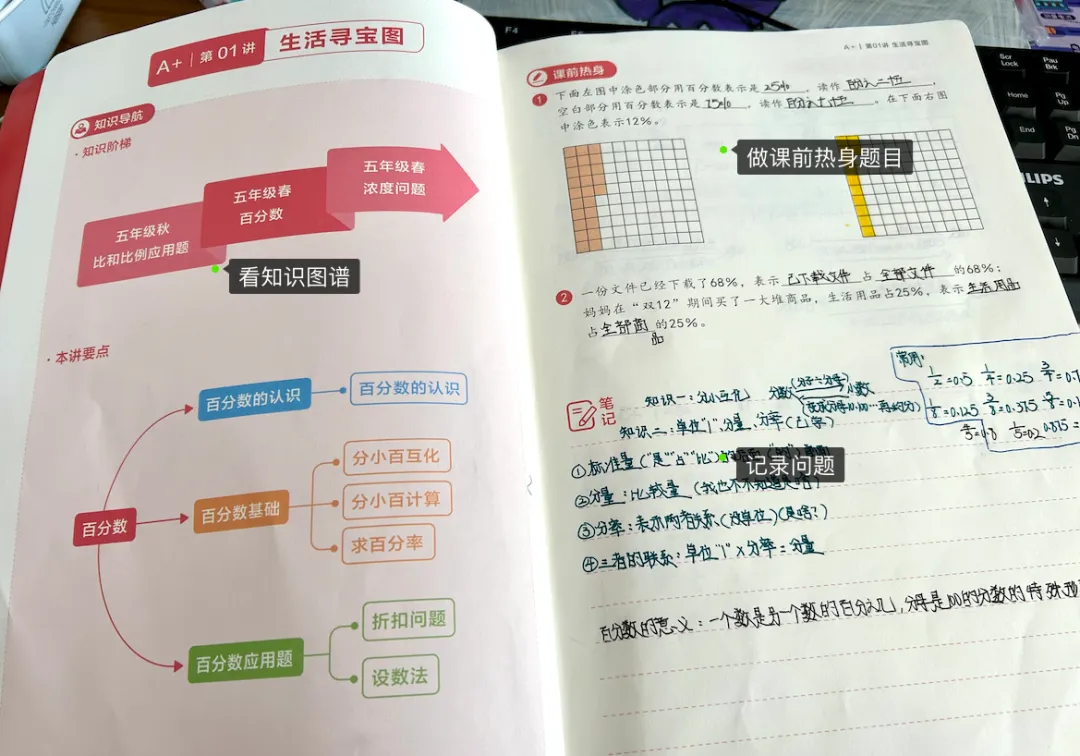 A+ 第 01 讲 生活寻宝图
知识导航
·知识阶梯
五年级秋
比和比例应用题
五年级春
百分数
五年级春
浓度问题
看知识图谱
·本讲要点
百分数
百分数的认识
百分数的认识
百分数基础
分小百互化
分小百计算
求百分率
百分数应用题
折扣问题
设数法
A+ | 第01讲 生活寻宝图
课前热身
1 下面左图中涂色部分用百分数表示是 25% ,读作 百分之二十五 ,
空白部分用百分数表示是 75% ,读作 百分之七十五 。在下面右图
中涂色表示12%。
做课前热身题目
2 一份文件已经下载了68%,表示 已下载文件 占 全部文件 的68%;
妈妈在“双12”期间买了一大堆商品,生活用品占25%,表示 生活用品
占 全部商品 的25%。
笔记
知识一:分小互化 分数 (分子÷分母) 小数
知识二:单位"1"、分量、分率(已学)
常用:
1/2=0.5 1/4=0.25
1/8=0.125 3/8=0.375
1/5=0.2
①标准量("是""占""比")
记录问题
②分量:比较量
③分率:表示两者联系(没单位)(是啥?)
④三者的联系:单位"1"×分率=分量
百分数的意义:一个数是另一个数的百分之几,分母是100的分数的特殊
F4
Scr Lock
Pau Brk
Home
Pg Up
End
Pg Dn
PHILIPS